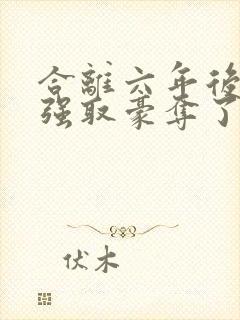 合離六年後
强取豪奪了
伏木